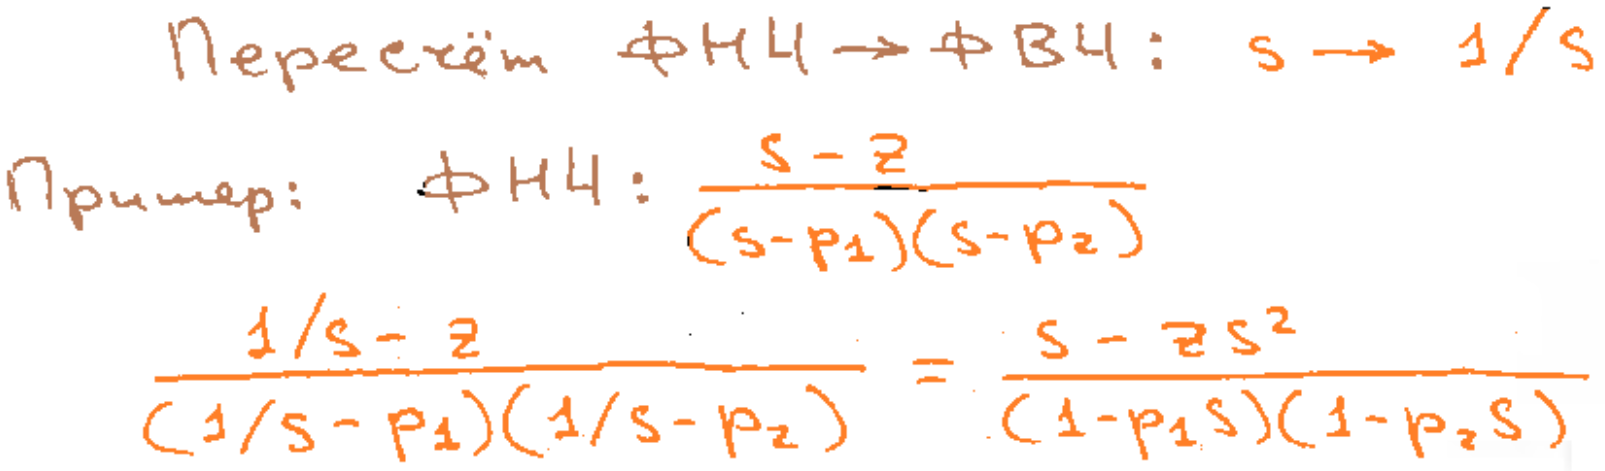 Пересчёт ФНЧ → ФВЧ: s → 1/s
Пример: ФНЧ: (s - z) / ((s-p1)(s-p2))
(1/s - z) / ((1/s - p1)(1/s - p2)) = (s - zs²) / ((1-p1s)(1-p2s))